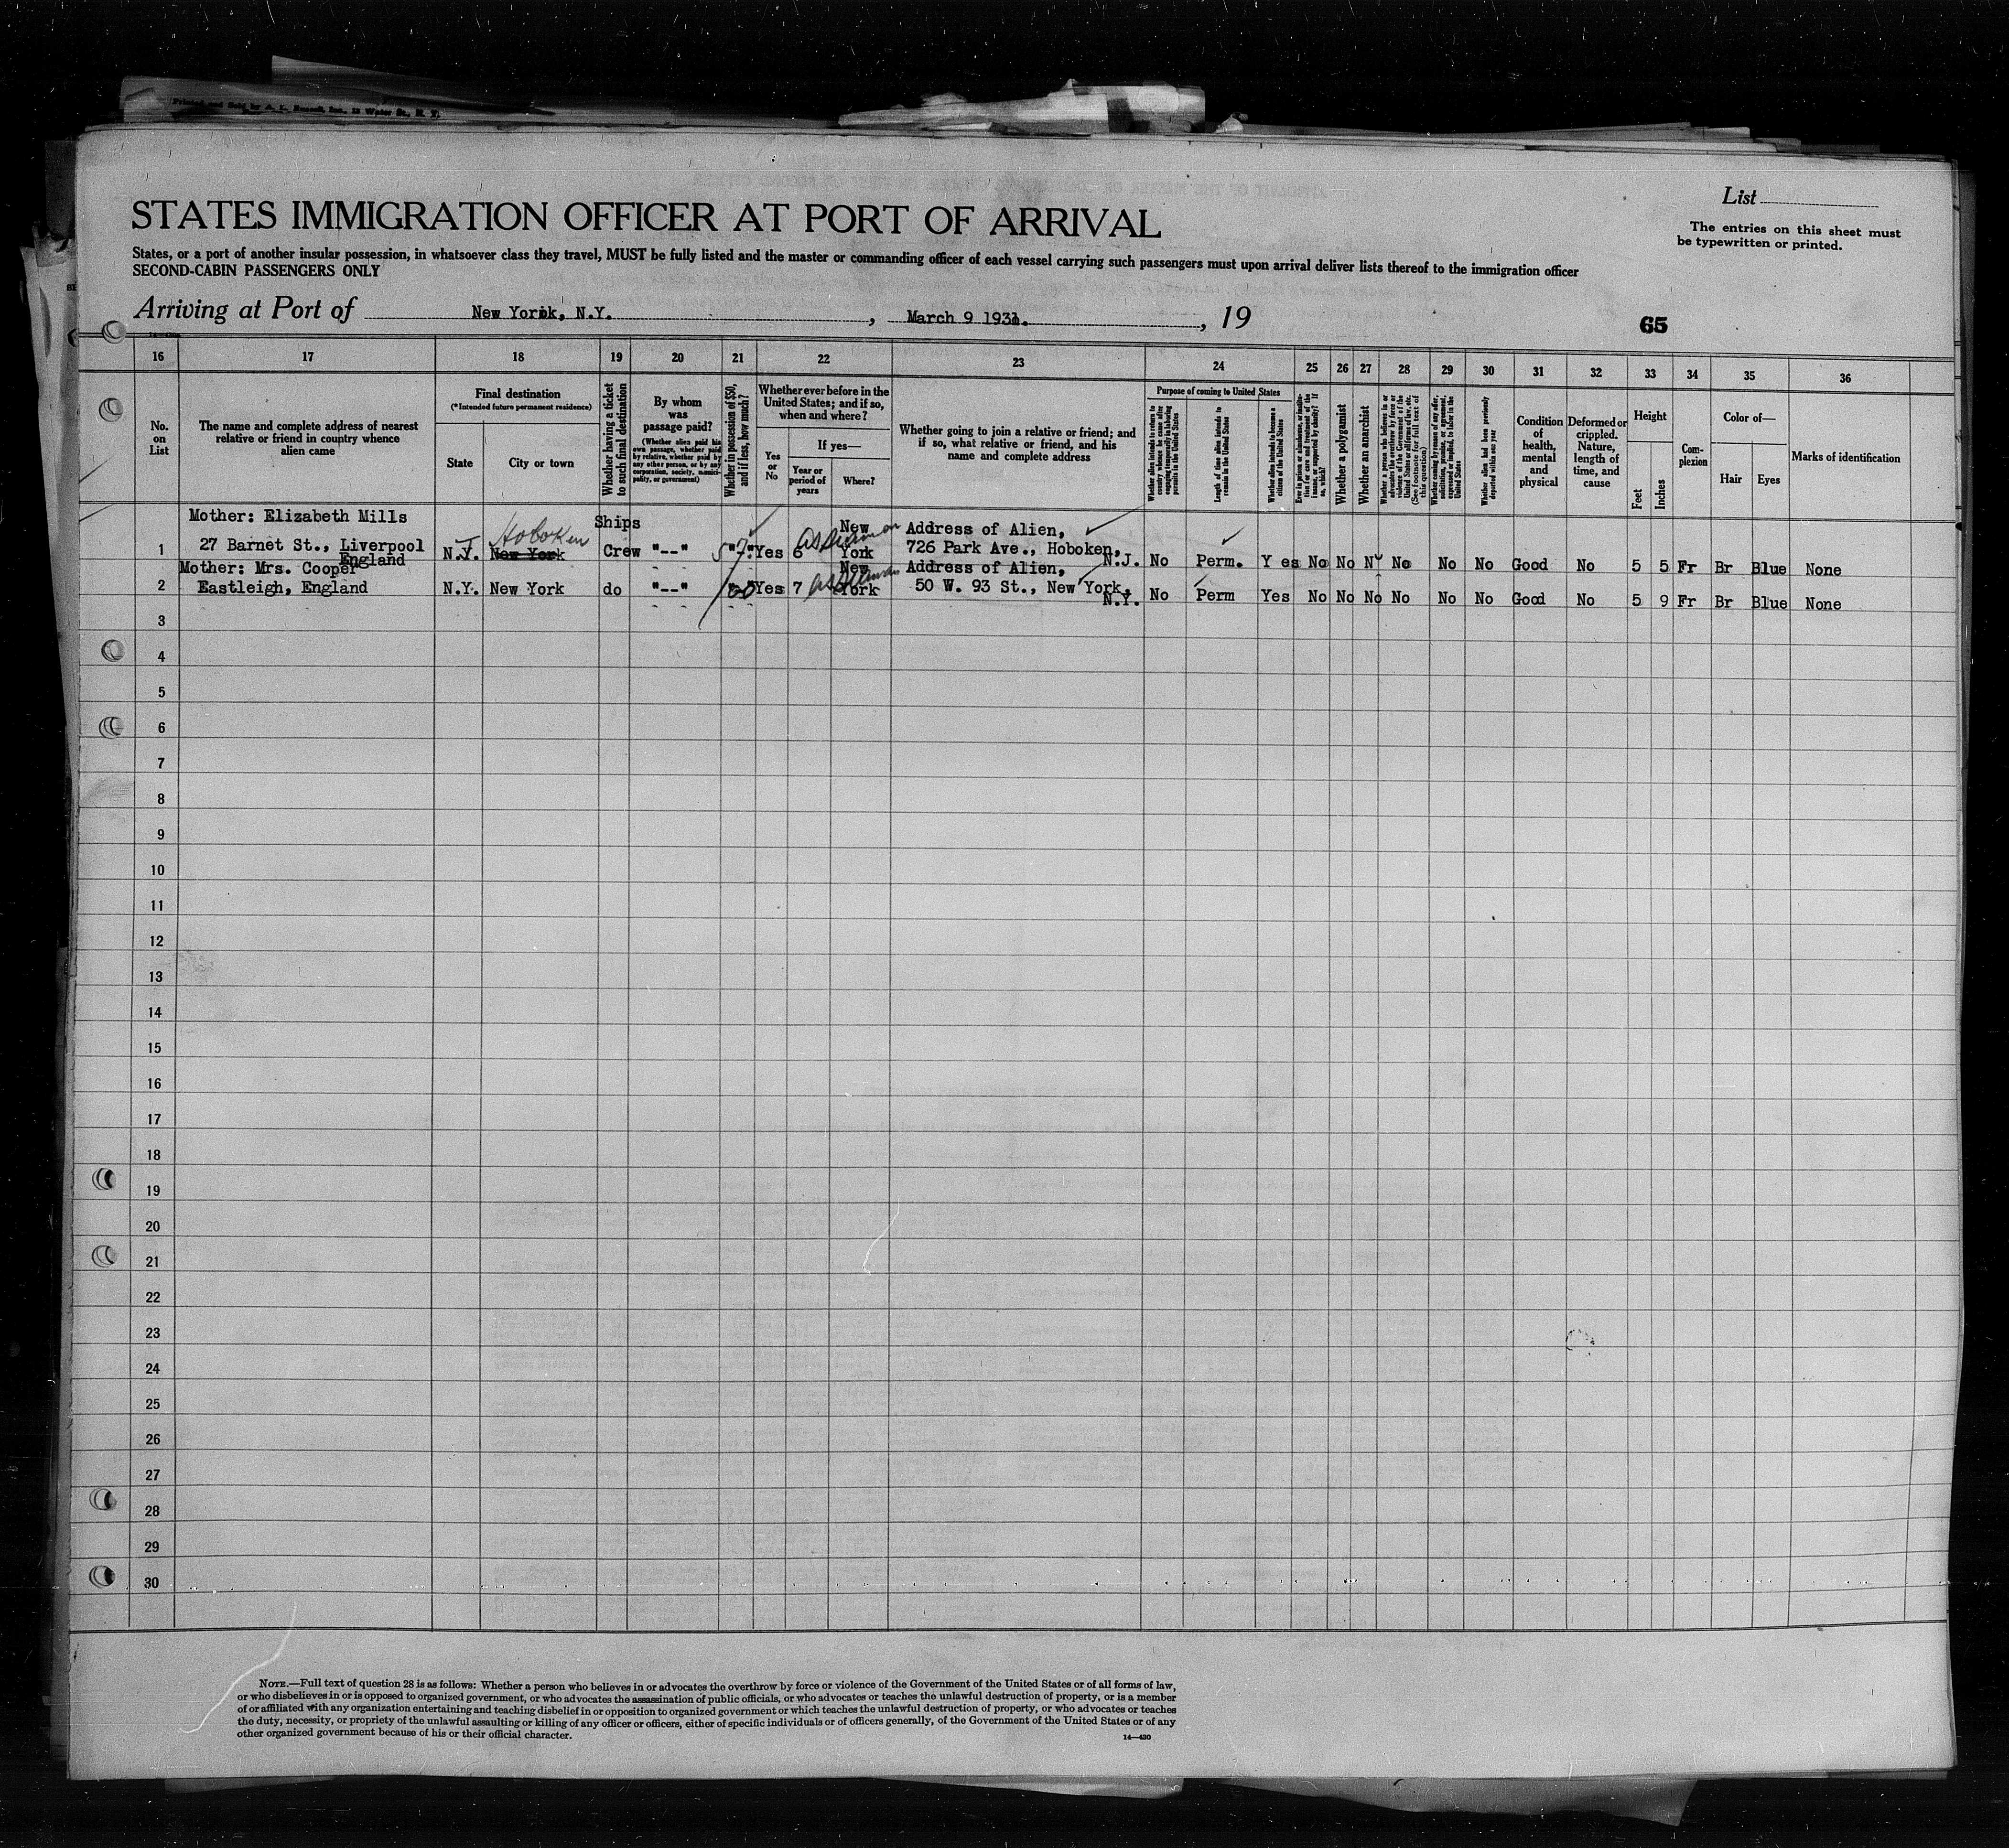 Printed and Sold by A. L. Russell, Inc., 12 Water St., N. Y.
STATES IMMIGRATION OFFICER AT PORT OF ARRIVAL
List
The entries on this sheet must
be typewritten or printed.
States, or a port of another insular possession, in whatsoever class they travel, MUST be fully listed and the master or commanding officer of each vessel carrying such passengers must upon arrival deliver lists thereof to the immigration officer
SECOND-CABIN PASSENGERS ONLY
Arriving at Port of New York, N.Y. , March 9 1931. , 19
65
16 17 18 19 20 21 22 23 24 25 26 27 28 29 30 31 32 33 34 35 36
No.
on
List
The name and complete address of nearest
relative or friend in country whence
alien came
Final destination
(*Intended future permanent residence)
State
City or town
Whether having a ticket
to such final destination
By whom
was
passage paid?
(Whether alien paid his
own passage, whether paid
by relative, whether paid by
any other person, or by any
corporation, society, munici-
pality, or government)
Whether in possession of $50,
and if less, how much?
Whether ever before in the
United States; and if so,
when and where?
Yes
or
No
If yes—
Year or
period of
years
Where?
Whether going to join a relative or friend; and
if so, what relative or friend, and his
name and complete address
Purpose of coming to United States
Whether alien intends to return to
country whence he came after
engaging temporarily in laboring
pursuits in the United States
Length of time alien intends to
remain in the United States
Whether alien intends to become a
citizen of the United States
Ever in prison or almshouse, or institu-
tion for care and treatment of the
insane, or supported by charity? If
so, which?
Whether a polygamist
Whether an anarchist
Whether a person who believes in or
advocates the overthrow by force or
violence of the Government of the
United States or all forms of law, etc.
(See footnote for full text of
this question)
Whether coming by reason of any offer,
solicitation, promise, or agreement,
expressed or implied, to labor in the
United States
Whether alien had been previously
deported within one year
Condition
of
health,
mental
and
physical
Deformed or
crippled.
Nature,
length of
time, and
cause
Height
Feet
Inches
Com-
plexion
Color of—
Hair
Eyes
Marks of identification
Mother: Elizabeth Mills Hoboken Ships New Address of Alien,
1 27 Barnet St., Liverpool N.Y. New York Crew "--" Yes 6 York 726 Park Ave., Hoboken,
England N.J. No Perm. Yes No No No No No Good No 5 5 Fr Br Blue None
Mother: Mrs. Cooper New Address of Alien,
2 Eastleigh, England N.Y. New York do "--" Yes 7 York 50 W. 93 St., New York,
N.Y. No Perm Yes No No No No No No Good No 5 9 Fr Br Blue None
3
4
5
6
7
8
9
10
11
12
13
14
15
16
17
18
19
20
21
22
23
24
25
26
27
28
29
30
NOTE.—Full text of question 28 is as follows: Whether a person who believes in or advocates the overthrow by force or violence of the Government of the United States or of all forms of law,
or who disbelieves in or is opposed to organized government, or who advocates the assassination of public officials, or who advocates or teaches the unlawful destruction of property, or is a member
of or affiliated with any organization entertaining and teaching disbelief in or opposition to organized government or which teaches the unlawful destruction of property, or who advocates or teaches
the duty, necessity, or propriety of the unlawful assaulting or killing of any officer or officers, either of specific individuals or of officers generally, of the Government of the United States or of any
other organized government because of his or their official character.
14—430